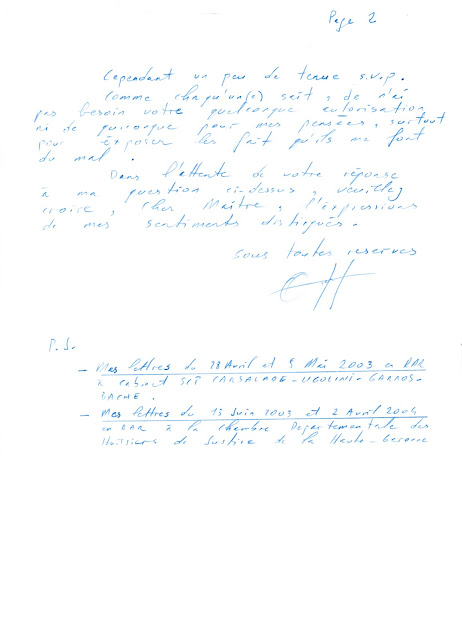 Page 2
Cependant un peu de tenue s.v.p.
Comme chaqu'un(e) sait, de n'ai
pas besoin votre quelconque autorisation
ni de quiconque pour mes pensées, surtout
pour exposer les fait qu'ils me font
du mal.
Dans l'attente de votre réponse
à ma question ci-dessus, veuillez
croire, Cher Maître, l'expressions
de mes sentiments distigués.
sous toutes reserves
P.S.
- Mes lettres du 28 Avril et 5 Mai 2003 en RAR
à cabinet CARSALADE-UGOLINI-GARROS-
- Mes lettres du 13 Juin 2003 et 2 Avril 2004
en RAR à la Chambre Departementale des
Huissiers de Justice de la Haute-Garonne